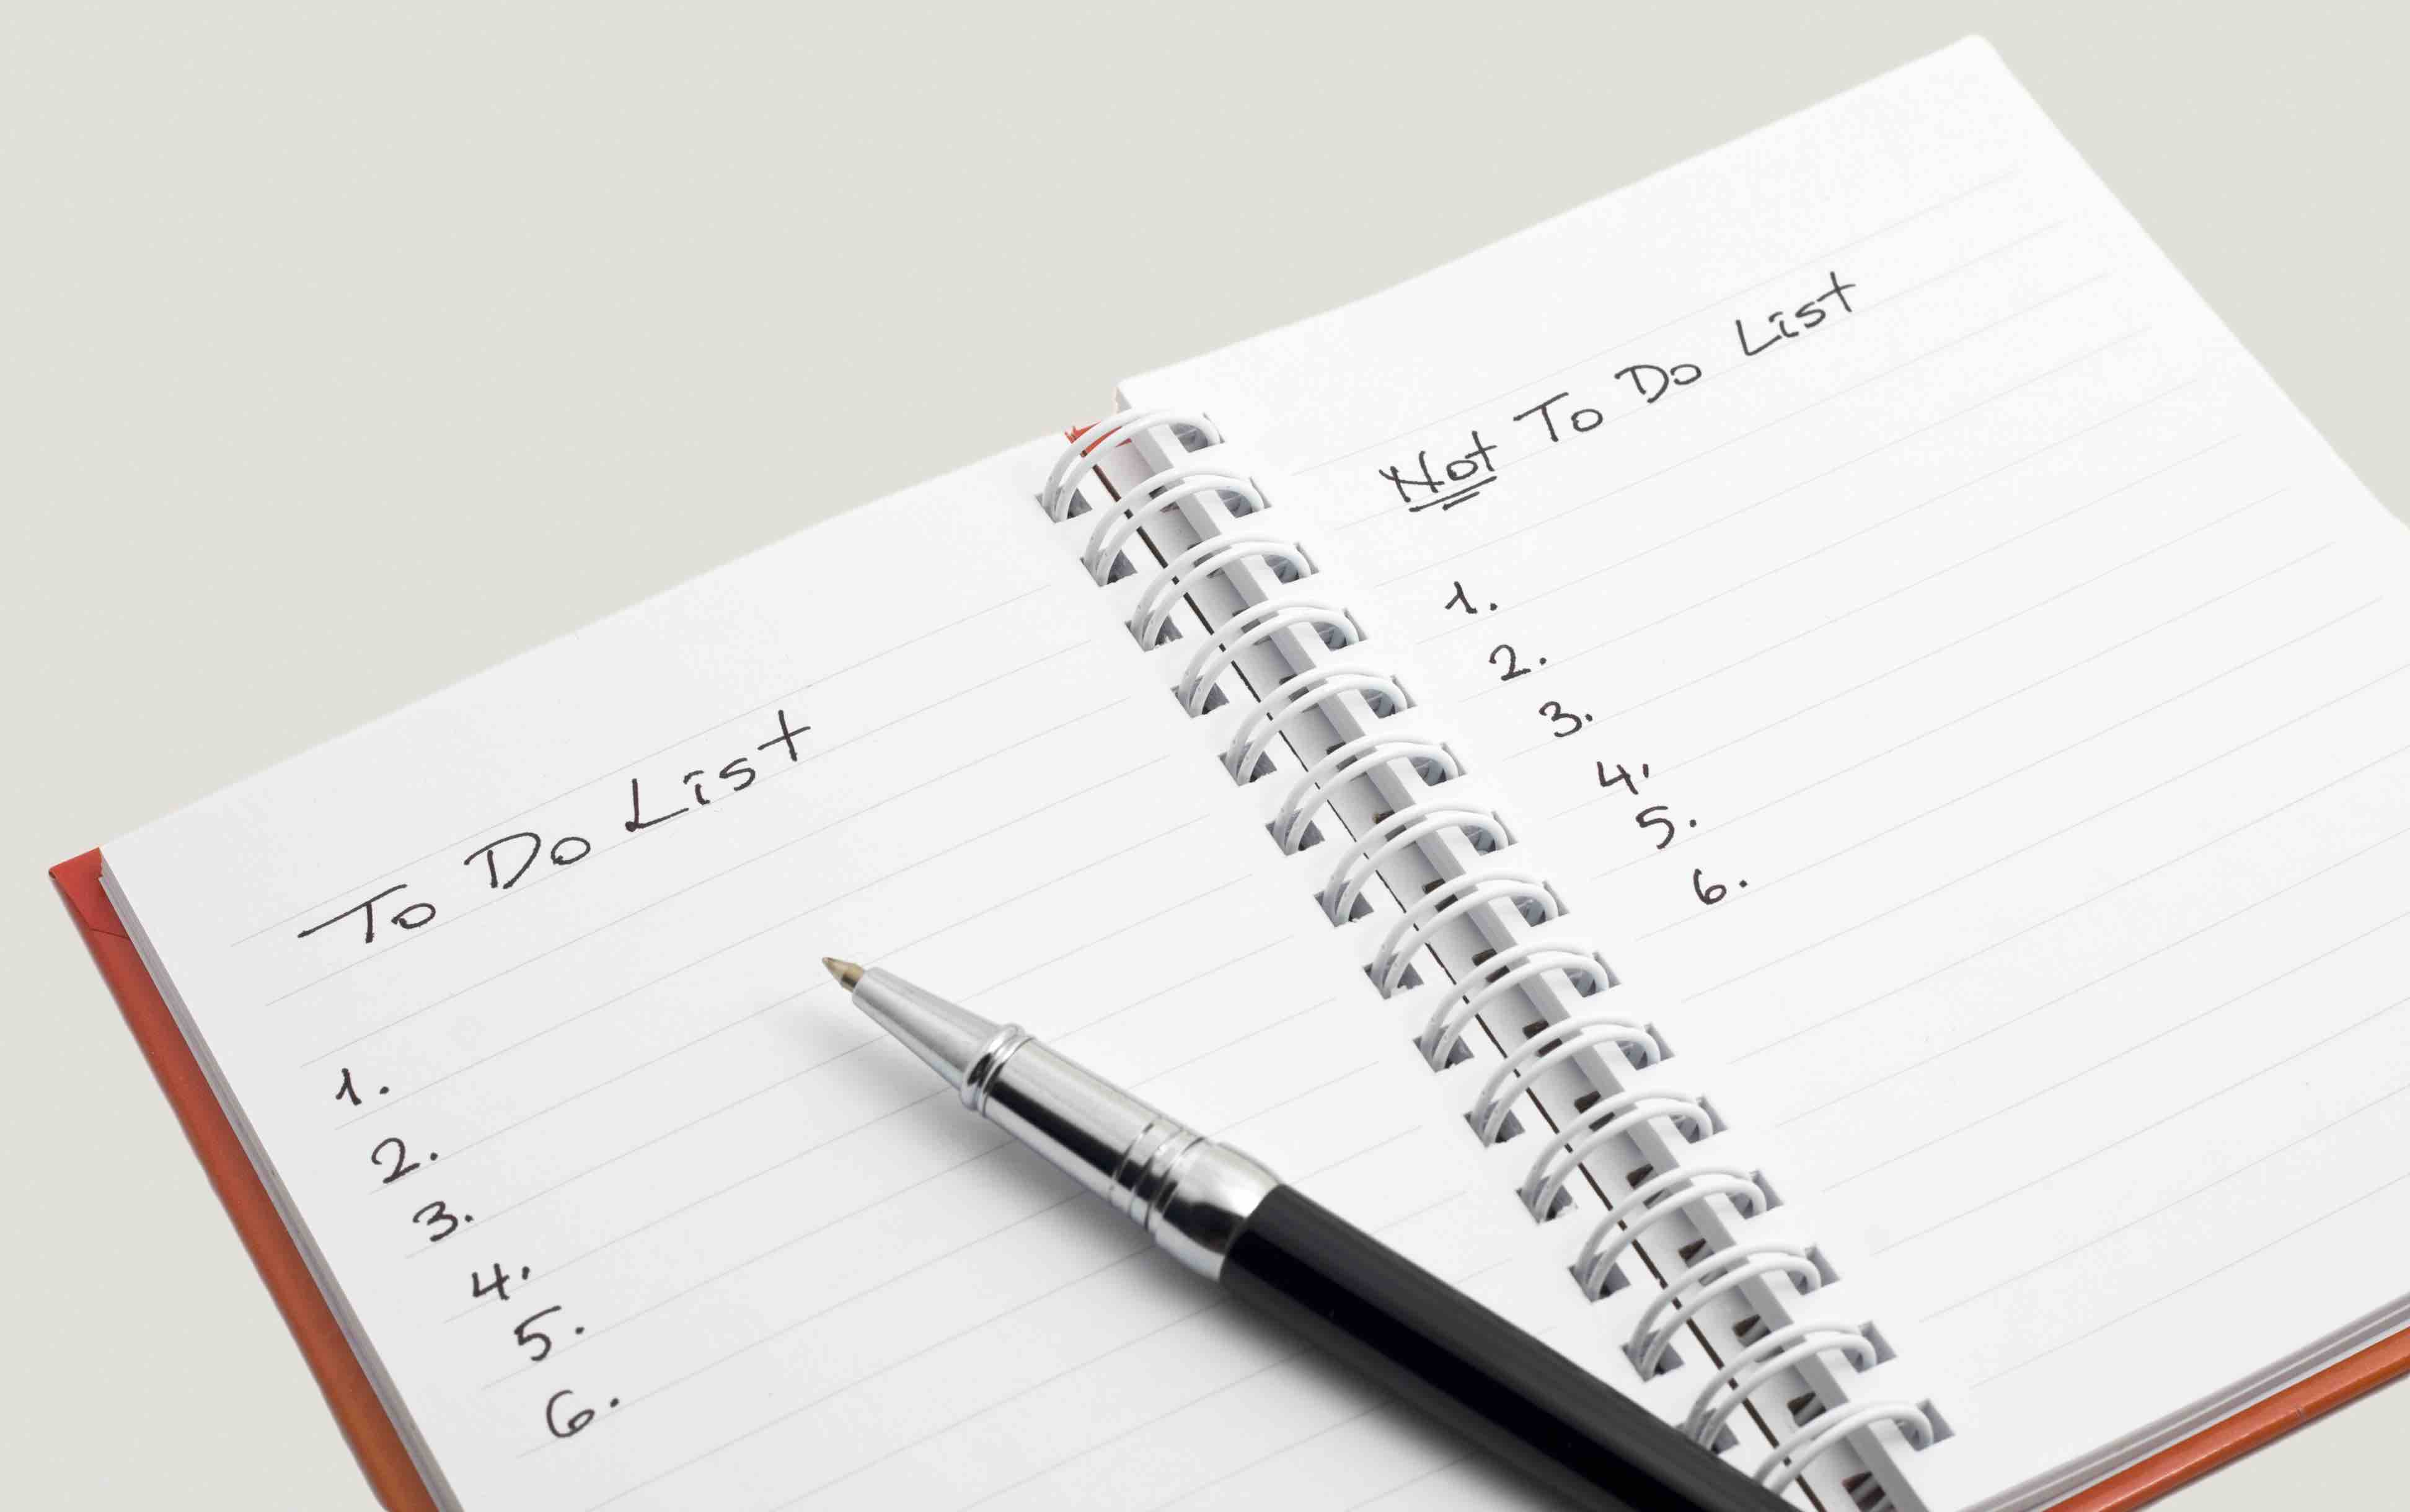 To Do List
1.
2.
3.
4.
5.
6.
Not To Do List
1.
2.
3.
4.
5.
6.